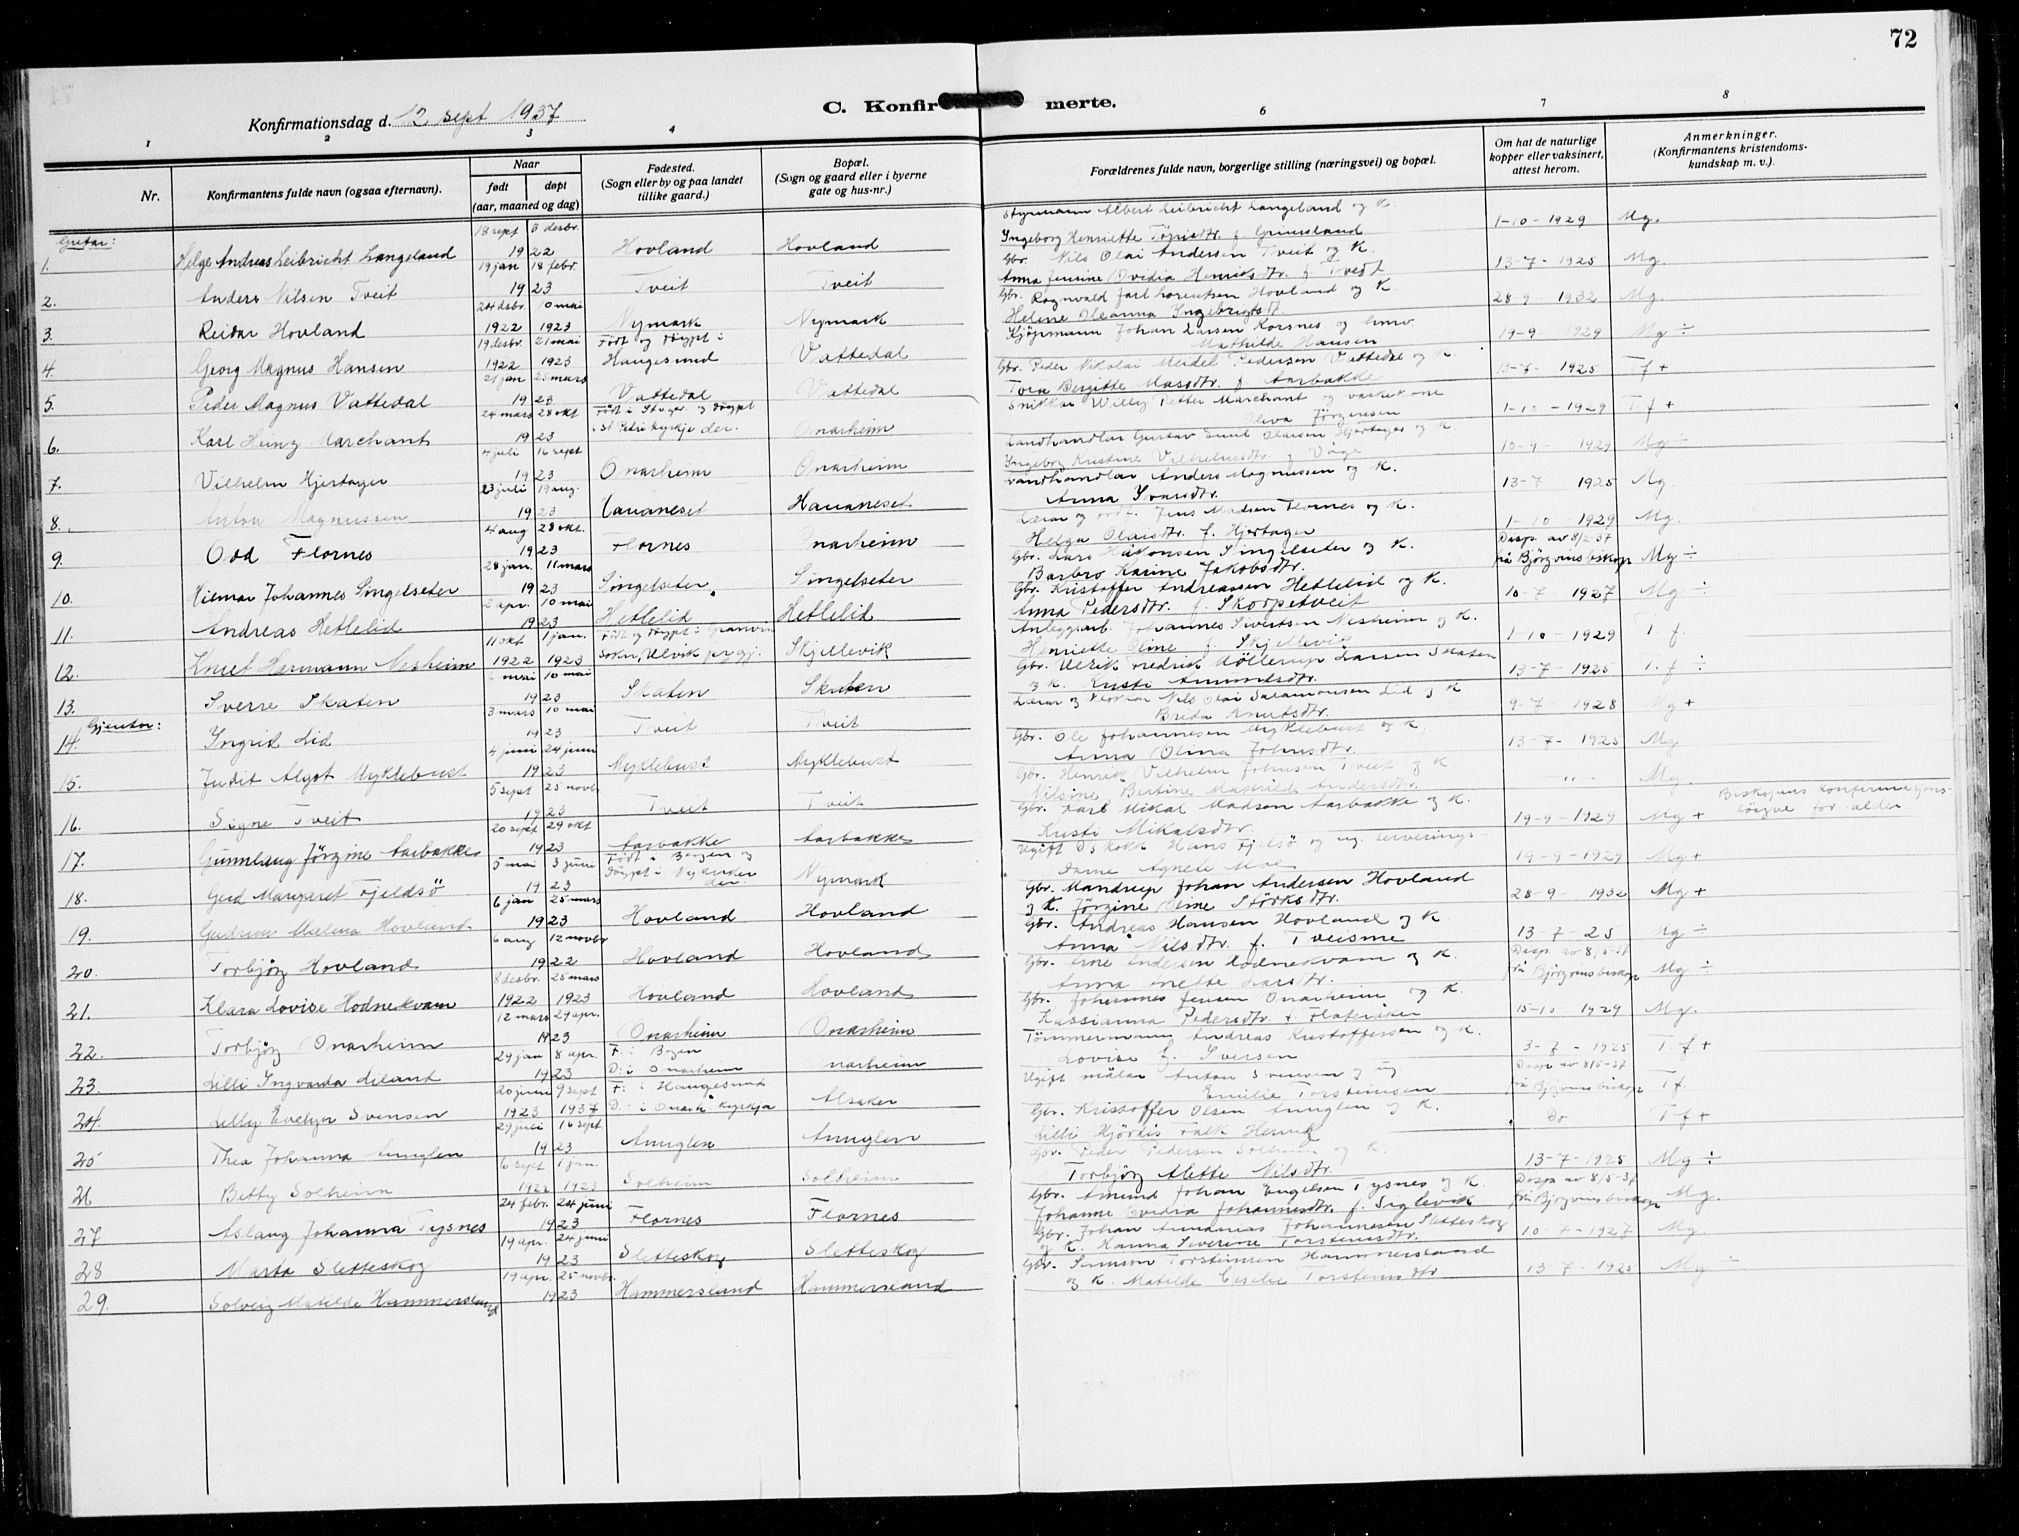 72
C. Konfirmerte.
Konfirmationsdag d. 12 sept 1937
1 2 3 4 6 7 8
Nr.
Konfirmantens fulde navn (ogsaa efternavn).
Naar
født døpt
(aar, maaned og dag)
Fødested.
(Sogn eller by og paa landet
tillike gaard.)
Bopæl.
(Sogn og gaard eller i byerne
gate og hus-nr.)
Forældrenes fulde navn, borgerlige stilling (næringsvei) og bopæl.
Om hat de naturlige
kopper eller vaksinert,
attest herom.
Anmerkninger.
(Konfirmantens kristendoms-
kundskap m. v.).
Gutar:
1. Helge Andreas Leibricht Langeland 18 sept 3 desbr. 1922 Hovland Hovland
Styrmann Albert Leibricht Langeland og K.
Ingeborg Henriette f. Grimsland 1-10-1929 Mg.
2. Anders Nilsen Tveit 19 jan 18 febr. 1923 Tveit Tveit
Gbr. Nils Olai Andersen Tveit og K.
Anna Jensine Ovidia Henriksdtr. f. Tveit 13-7-1925 Mg.
3. Reidar Hovland 24 desbr. 1922 10 mai 1923 Nymark Nymark
Gbr. Ragnvald Jarl Lorentsen Hovland og K
Helene Oleanna Ingebrigtsdt 28-9-1932 Mg.
4. Georg Magnus Hansen 19 desbr. 1922 21 mai 1923 Født og døypt i Haugesund Vattedal
Kjöpmann Johan Larsen Korsnes og
Mathilde Hansen 19-9-1929 Mg ÷
5. Peder Magnus Vattedal 21 jan 25 mars 1923 Vattedal Vattedal
Gbr. Peder Nikolai Meidel Pedersen Vattedal og K.
Tora Bergitte Masdtr. f. Aarbakke 13-7-1925 Tf +
6. Karl Heinz Marchant 24 mars 28 okt 1923 Født i og døypt
i St Petri kyrkje der. Onarheim
Snikkar Willy Petter Marchant og
Oliva Jörgensen 1-10-1929 T. f +
7. Vilhelm Hjertager 4 juli 16 sept 1923 Onarheim Onarheim
Landhandlar Gustav Emil Olaisen Hjertager og K.
Ingeborg Kristine Vilhelmsdtr. f. Våge 10-9-1929 Mg ÷
8. Anton Magnussen 23 juli 19 aug. 1923 Havaneset Havaneset
Landhandlar Anders Magnussen og K.
Anna Ivarsdtr. 13-7 1925 Mg.
9. Odd Flornes 4 aug 28 okt. 1923 Flornes Onarheim
Lærar og ordf. Jens Madsen Flornes og K.
Helga Olaisdtr. f. Hjertager 1-10 1929 Mg.
10. Hilmar Johannes Singelseter 28 jan. 11 mars 1923 Singelseter Singelseter
Gbr. Lars Håkonsen Singelseter og K.
Barbro Karine Jakobsdtr. Disp. av 8/2-37
frå Björgvins biskop Mg ÷
11. Andreas Hetlelid 2 apr. 10 mai 1923 Hetlelid Hetlelid
Gbr. Kristoffer Andreassen Hetlelid og K.
Anna Pedersdtr. f. Skorpetveit 10-7-1927 Mg ÷
12. Knut Hermann Nesheim 11 okt 1922 1 jan. 1923 Født og döypt i Granvin
sokn, Ulvik prgj. Skjellevik
Anleggsarb. Johannes Sivertsen Nesheim og K.
Henriette Oline f. Skjellevik 1-10-1929 T. f.
13. Sverre Skaten 6 mai 10 mai 1923 Skaten Skaten
Gbr. Ulrik Fredrik Möllerup Larsen Skaten
og K. Kristi Amundsdtr. 13-7-1925 T. f ÷
Gjentor:
14. Ingrid Lid 3 mars 10 mai 1923 Tveit Tveit
Lærar og klokkar Nils Olai Salamonsen Lid og K
Brita Knutsdtr. 9-7-1928 Mg +
15. Judit Algot Myklebust 4 juni 24 juni 1923 Myklebust Myklebust
Gbr. Ole Johannesen Myklebust og K.
Anna Olina Johnsdtr. 13-7-1925 Mg.
16. Signe Tveit 5 sept 25 novbr. 1923 Tveit Tveit
Gbr. Henrik Vilhelm Johnsen Tveit og K.
Nilsine Bertine Mathilde Andersdtr. -"- Mg.
17. Gunnlaug Jörgine Aarbakke 20 sept 29 okt 1923 Aarbakke Aarbakke
Gbr. Karl Mikal Madsen Aarbakke og K.
Kristi Mikalsdtr. 19-9-1929 Mg + Biskopens konfirmasjons-
löyve for alder.
18. Gerd Margaret Fjeldsö 5 mai 3 juni 1923 Født i Bergen og
døypt i Nykirken
der. Nymark
Ugift kokk Hans Fjelsö og ug. serverings-
dame Agnete Moe 19-9-1929 Mg +
19. Gudrun Malena Hovland 6 jan 25 mars 1923 Hovland Hovland
Gbr. Mandrup Johan Andersen Hovland
og K. Jörgine Oline Störksdtr. 28-9-1932 Mg +
20. Torbjörg Hovland 6 aug 12 novbr 1922 Hovland Hovland
Gbr. Andreas Hansen Hovland og K
Anna Nilsdtr. f. Tveisme 13-7-25 Mg ÷
21. Klara Lovise Hodnekvam 8 desbr. 1922 25 mars 1923 Hovland Hovland
Gbr. Arne Andersen Hodnekvam og K.
Anna Mette Larsdtr. Disp. av 8/5-37
frå Björgvins biskop Mg ÷
22. Torbjörg Onarheim 12 mars 29 apr. 1923 Onarheim Onarheim
Gbr. Johannes Jensen Onarheim og K.
Kassianna Pedersdtr. f. Flateråker 15-10 1929 Mg.
23. Lilli Ingvarda Liland 29 jan 8 apr. 1923 F. i Bergen
D: i Onarheim Onarheim
Tömmermann Andreas Kristoffersen og K.
Lovise f. Iversen 3-7-1925 T. f +
24. Lilly Evelyn Svensen 20 juni 1923 9 sept 1937 F: i Haugesund
D: i Onarh. kyrkja Alsaker
Ugift målar Anton Svensen og ug
Emilie Torsteinsen Disp av 8/5-37
frå Björgvins biskop T f.
25 Thea Johanna Anuglen 29 juli 16 sept. 1923 Anuglen Anuglen
Gbr. Kristoffer Olsen Anuglen og K.
Lilli Hjördis Falk Do T f +
26 Betty Solheim 6 sept 1922 1 jan. 1923 Solheim Solheim
Gbr. Peder Pedersen Solheim og K.
Torbjörg Alette Nilsdtr. 13-7-1925 Mg ÷
27 Aslaug Johanna Tysnes 24 febr. 24 juni 1923 Flornes Flornes
Gbr. Amund Johan Engelsen Tysnes og K.
Johanne Ovidia Johannesdtr. f. Siglevik Disp av 8/5-37
frå Björgvins biskop Mg.
28 Marta Sletteskog 19 apr. 24 juni 1923 Sletteskog Sletteskog
Gbr. Johan Ananias Johannesen Sletteskog
og K. Hanna Severine Torsteinsdtr. 10-7-1927 Mg.
29. Solveig Matilde Hammersland 19 apr. 25 novbr. 1923 Hammersland Hammersland
Gbr. Simson Torsteinsen Hammersland
og K. Matilde Cecilie Torsteinsdtr 13-7-1925 Mg ÷